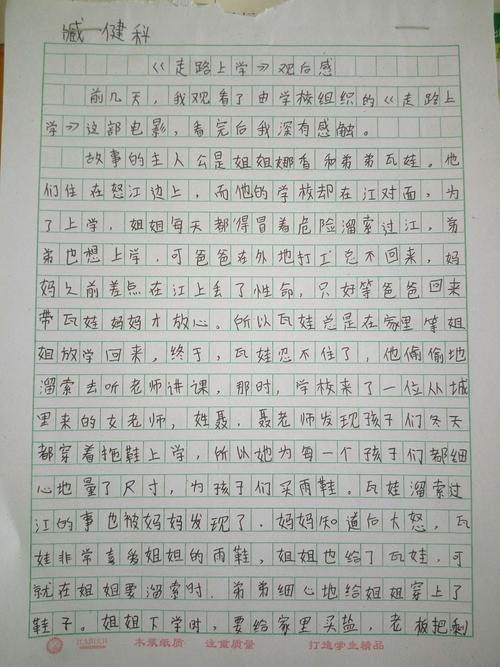 臧一健科
《走路上学》观后感
前几天，我观看了由学校组织的《走路上
学》这部电影，看完后我深有感触。
故事的主人公是姐姐娜香和弟弟瓦娃。他
们住在怒江边上，而他的学校却在江对面，为
了上学，姐姐每天都得冒着危险溜索过江，弟
弟也想上学，可爸爸在外地打工总不回来，妈
妈之前差点在江上丢了性命，只好等爸爸回来
带瓦娃妈妈才放心。所以瓦娃总是在家里等姐
姐放学回来，终于，瓦娃忍不住了，他偷偷地
溜索去听老师讲课，那时，学校来了一位从城
里来的女老师，姓聂，聂老师发现孩子们冬天
都穿着拖鞋上学，所以她为每一个孩子们都细
心地量了尺寸，为孩子们买雨鞋。瓦娃溜索过
江的事也被妈妈发现了，妈妈知道后大怒，瓦
娃非常喜爱姐姐的雨鞋，姐姐也给了瓦娃，可
就在姐姐要溜索时，弟弟细心地给姐姐穿上了
鞋子。姐姐下学时，要给家里买盐，老板把剩
木浆纸质 注重质量 打造学生精品